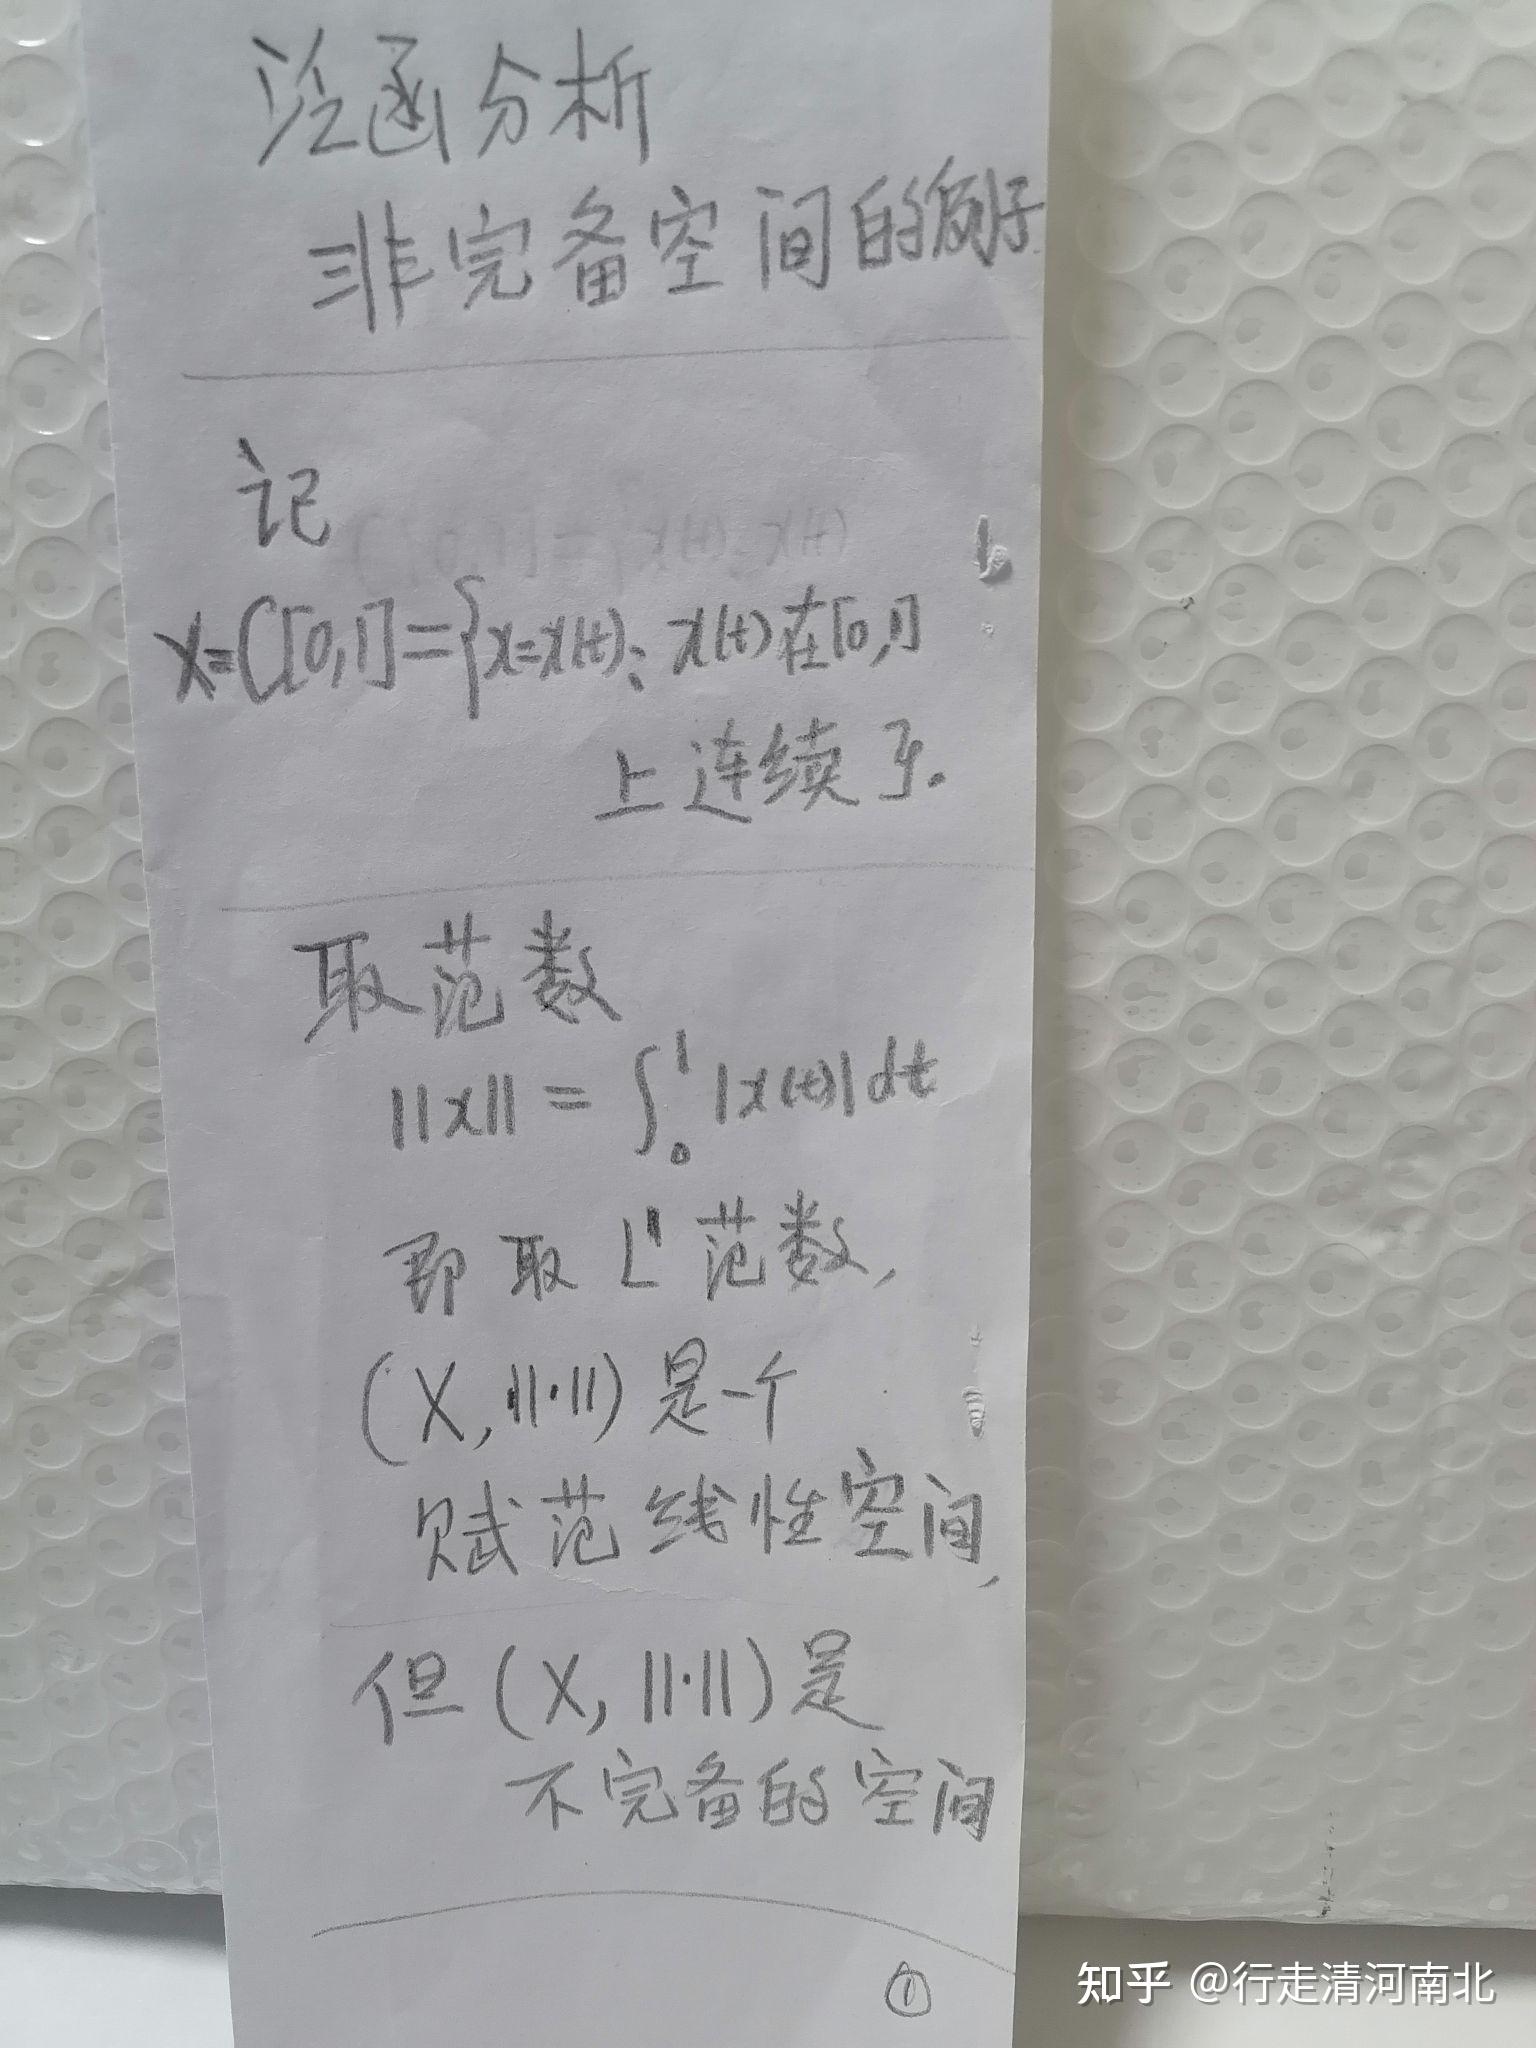 泛函分析
非完备空间的例子
记
X=C[0,1]={x=x(t): x(t)在[0,1]
上连续}.
取范数
||x|| = ∫₀¹ |x(t)| dt
即取 L¹ 范数,
(X, ||·||) 是一个
赋范线性空间,
但 (X, ||·||) 是
不完备的空间
①
知乎 @行走清河南北